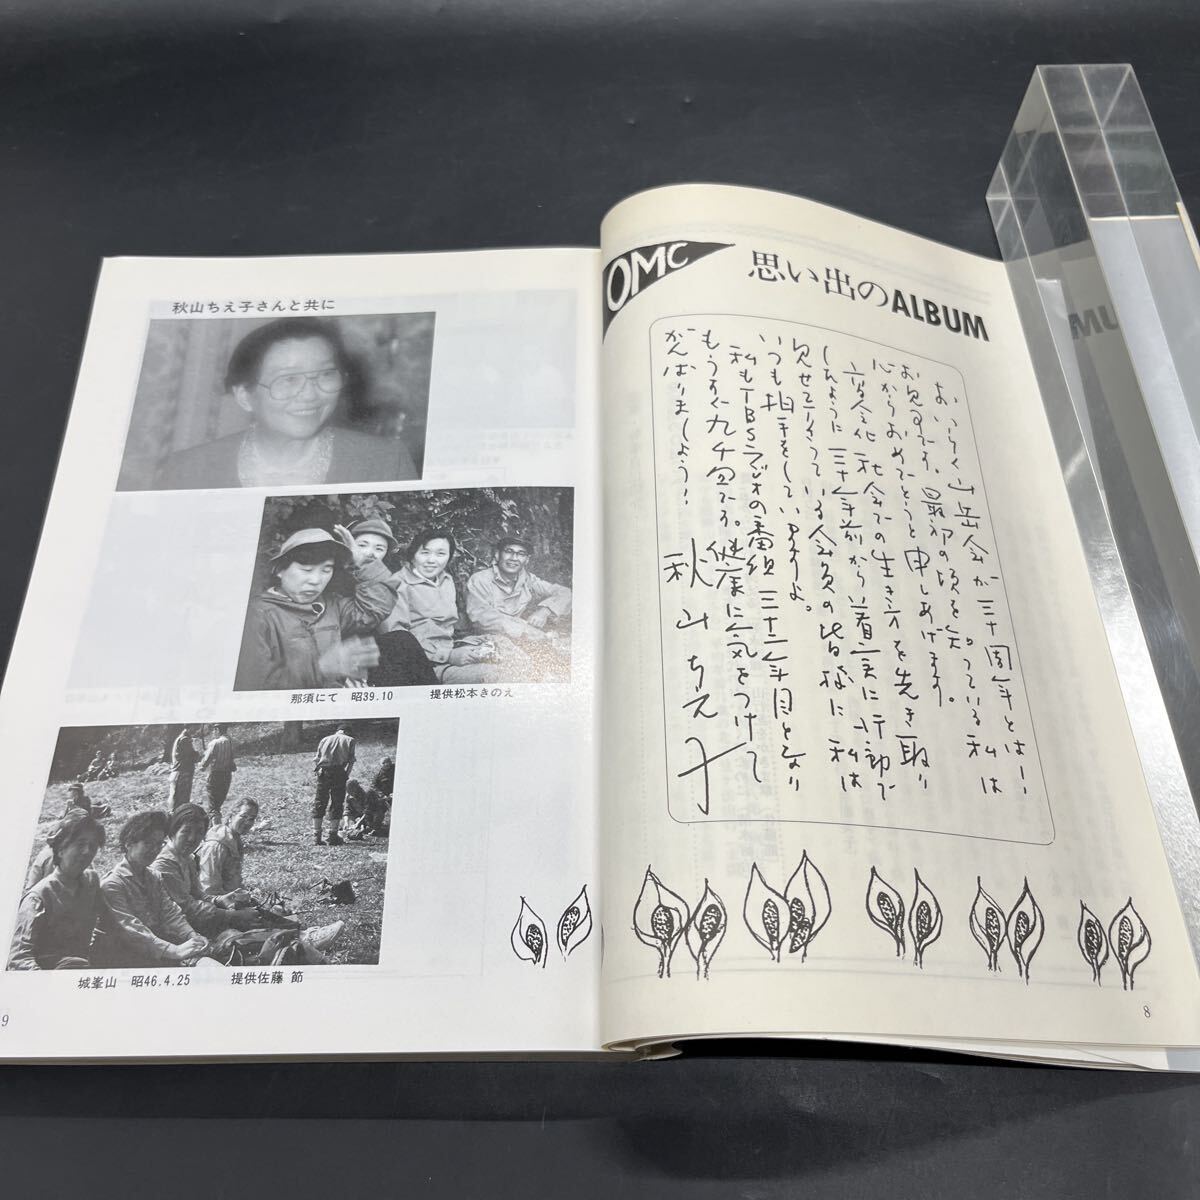 OMC
思い出のALBUM
おいらく山岳会が三十周年とは！
お見事です。最初の頃を知っている私は
心からおめでとうと申しあげます。
高令化社会での生き方を先き取り
したように三十年前から着実に行動で
見せて下さっている会員の皆様に私は
いつも拍手をしていますよ。
私もTBSラジオの番組三十二年目となり
もうすぐ九千回です。健康に気をつけて
がんばりましょう！
秋山ちえ子
8
秋山ちえ子さんと共に
那須にて 昭39.10 提供松本きのえ
城峯山 昭46.4.25 提供佐藤 節
9
MU